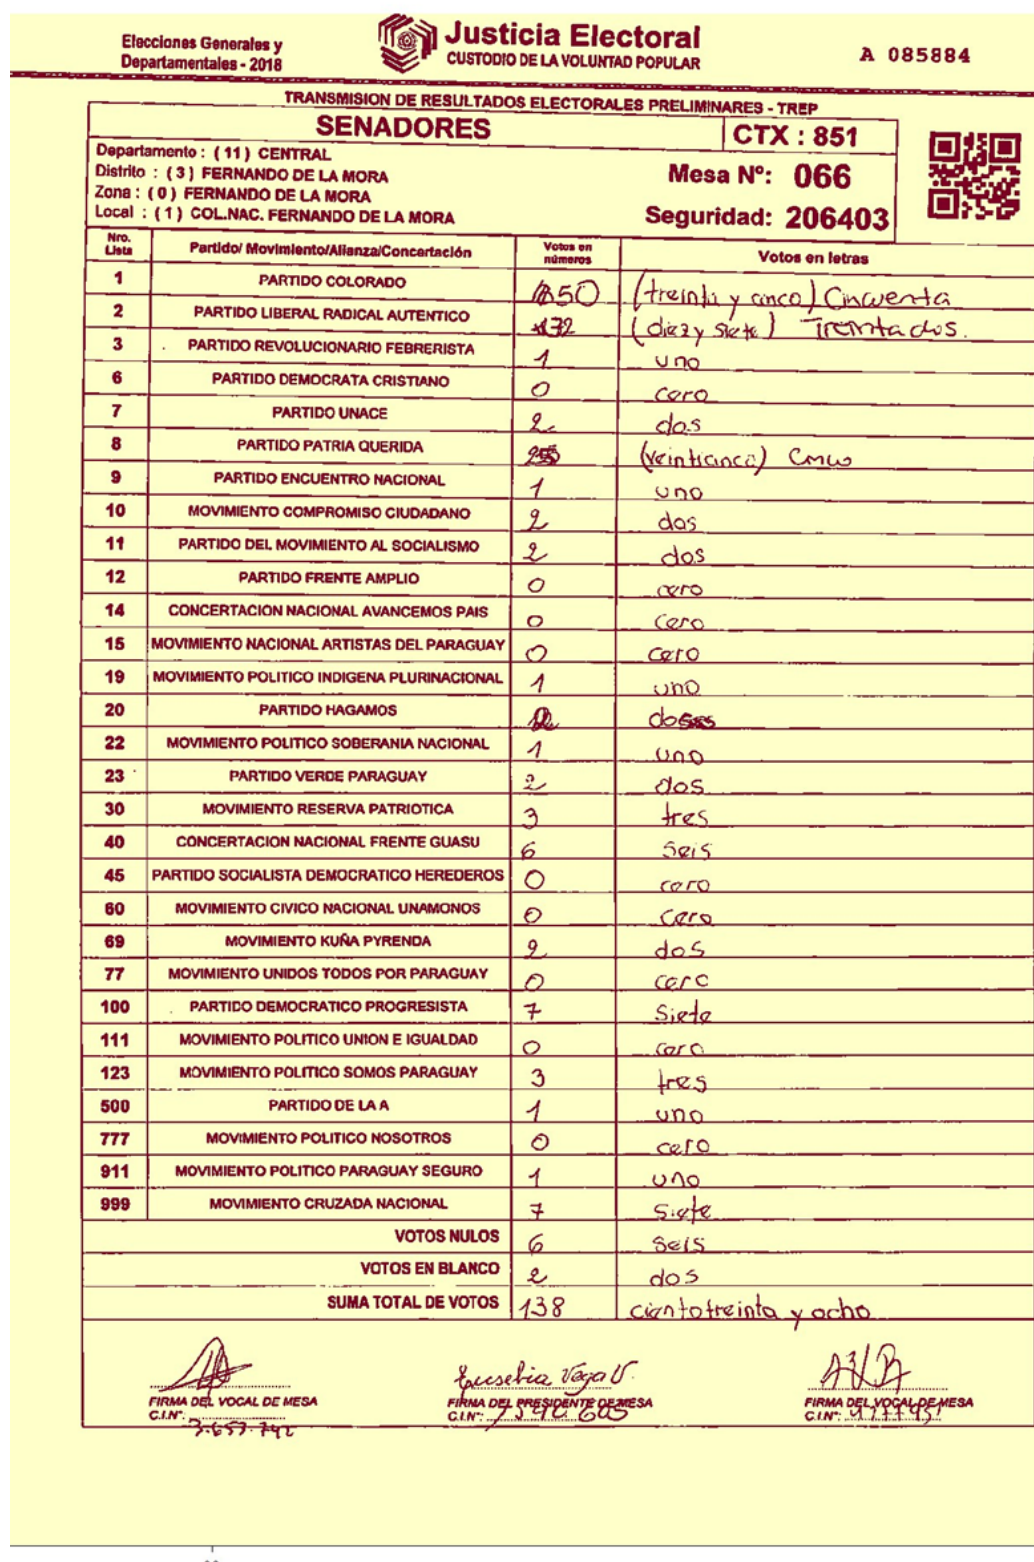 Elecciones Generales y
Departamentales - 2018
Justicia Electoral
CUSTODIO DE LA VOLUNTAD POPULAR
A 085884
TRANSMISION DE RESULTADOS ELECTORALES PRELIMINARES - TREP
SENADORES CTX : 851
Departamento : ( 11 ) CENTRAL
Distrito : ( 3 ) FERNANDO DE LA MORA
Zona : ( 0 ) FERNANDO DE LA MORA
Local : ( 1 ) COL.NAC. FERNANDO DE LA MORA
Mesa Nº: 066
Seguridad: 206403
Nro. Lista Partido/ Movimiento/Alianza/Concertación Votos en números Votos en letras
1 PARTIDO COLORADO 50 (treinta y cinco) Cincuenta
2 PARTIDO LIBERAL RADICAL AUTENTICO 32 (diez y siete) Treinta dos.
3 PARTIDO REVOLUCIONARIO FEBRERISTA 1 uno
6 PARTIDO DEMOCRATA CRISTIANO 0 cero
7 PARTIDO UNACE 2 dos
8 PARTIDO PATRIA QUERIDA (veinticinco) Cinco
9 PARTIDO ENCUENTRO NACIONAL 1 uno
10 MOVIMIENTO COMPROMISO CIUDADANO 2 dos
11 PARTIDO DEL MOVIMIENTO AL SOCIALISMO 2 dos
12 PARTIDO FRENTE AMPLIO 0 cero
14 CONCERTACION NACIONAL AVANCEMOS PAIS 0 cero
15 MOVIMIENTO NACIONAL ARTISTAS DEL PARAGUAY 0 cero
19 MOVIMIENTO POLITICO INDIGENA PLURINACIONAL 1 uno
20 PARTIDO HAGAMOS 2 dos
22 MOVIMIENTO POLITICO SOBERANIA NACIONAL 1 uno
23 PARTIDO VERDE PARAGUAY 2 dos
30 MOVIMIENTO RESERVA PATRIOTICA 3 tres
40 CONCERTACION NACIONAL FRENTE GUASU 6 Seis
45 PARTIDO SOCIALISTA DEMOCRATICO HEREDEROS 0 cero
60 MOVIMIENTO CIVICO NACIONAL UNAMONOS 0 cero
69 MOVIMIENTO KUÑA PYRENDA 2 dos
77 MOVIMIENTO UNIDOS TODOS POR PARAGUAY 0 cero
100 PARTIDO DEMOCRATICO PROGRESISTA 7 Siete
111 MOVIMIENTO POLITICO UNION E IGUALDAD 0 cero
123 MOVIMIENTO POLITICO SOMOS PARAGUAY 3 tres
500 PARTIDO DE LA A 1 uno
777 MOVIMIENTO POLITICO NOSOTROS 0 cero
911 MOVIMIENTO POLITICO PARAGUAY SEGURO 1 uno
999 MOVIMIENTO CRUZADA NACIONAL 7 Siete
VOTOS NULOS 6 Seis
VOTOS EN BLANCO 2 dos
SUMA TOTAL DE VOTOS 138 ciento treinta y ocho
Eusebia Vega V.
FIRMA DEL VOCAL DE MESA FIRMA DEL PRESIDENTE DE MESA FIRMA DEL VOCAL DE MESA
C.I.Nº: 3.657.742 C.I.Nº: C.I.Nº: